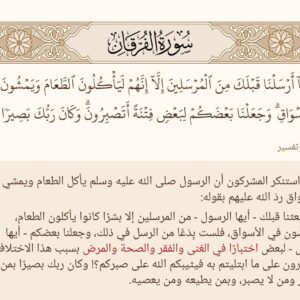 سُورَةُ الفُرْقَانِ
أَرْسَلْنَا قَبْلَكَ مِنَ الْمُرْسَلِينَ إِلَّا إِنَّهُمْ لَيَأْكُلُونَ الطَّعَامَ وَيَمْشُونَ
وَجَعَلْنَا بَعْضَكُمْ لِبَعْضٍ فِتْنَةً أَتَصْبِرُونَ وَكَانَ رَبُّكَ بَصِيرًا
تفسير
استنكر المشركون أن الرسول صلى الله عليه وسلم يأكل الطعام ويمشي
رد الله عليهم بقوله:
قبلك - أيها الرسول - من المرسلين إلا بشرًا كانوا يأكلون الطعام،
في الأسواق، فلست بِدْعًا من الرسل في ذلك، وجعلنا بعضكم - أيها
- لبعض اختبارًا في الغنى والفقر والصحة والمرض بسبب هذا الاختلاف
على ما ابتليتم به فيثيبكم الله على صبركم؟! وكان ربك بصيرًا بمن
ومن لا يصبر، وبمن يطيعه ومن يعصيه.